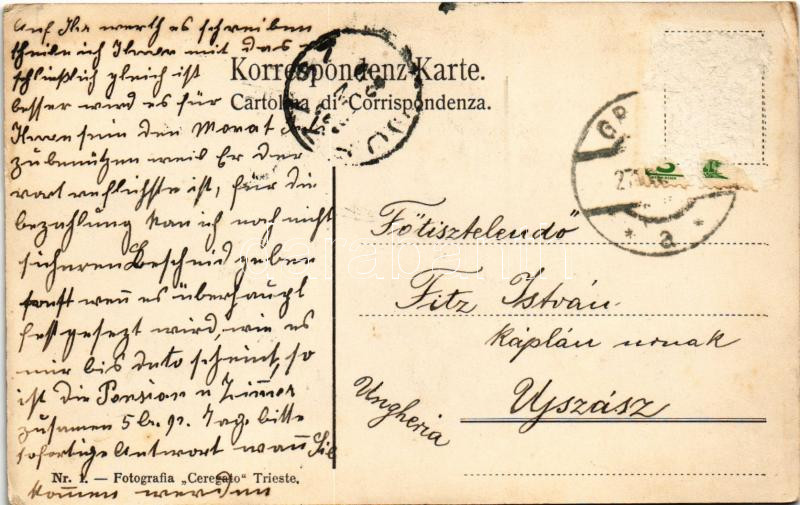 Auf Ihr werth es schreiben
theile ich Ihnen mit das
schließlich gleich ist
besser wird es für
Ihnen sein den Monat Juli
zu benützen weis Er der
vortreflichste ist, für die
bezahlung kan ich noch nicht
sicheren Bescheid geben
sonst weñ es überhaupt
fest gesezt wird, wie es
mir bis dato scheint, so
ist die Pension u Zim̃er
zusamen 5 Tag bitte
sofortige Antwort wañ Sie
kom̃en werden
Korrespondenz-Karte.
Cartolina di Corrispondenza.
Főtisztelendő
Fitz István
káplán urnak
Ujszász
Ungheria
Nr. 1. — Fotografia „Ceregato" Trieste.
GR
27
* a *